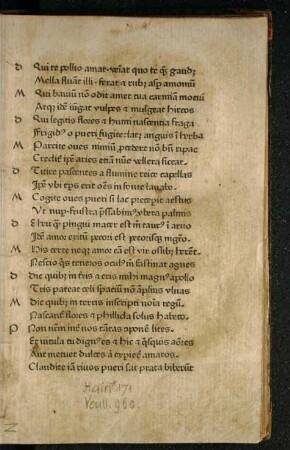 D Qui te pollio amat· veniat quo te qꝫ gaudꝫ
Mella fluāt illi · ferat & rubꝫ aspꝫ amomū
M Qui bauiū nō odit amet tua carmīa moeui
Atqꝫ idē iūgat vulpes & mulgeat hircos
D Qui legitis flores & humi nascentia fraga
Frigidꝰ o pueri fugite: latꝫ anguis ī herba
M Parcite oues nimiū ꝓcedere nō bn̄ ripae
Creditꝫ ipse aries etiā nūc vellera siccat
D Titire pascentes a flumine reice capellas
Ipē vbi tp̄s erit oēs in fonte lauabo
M Cogite oues pueri si lac precepit aestus
Vt nupꝫ frustra p̄ssabimꝰ vbera palmis
D Eheu qꝫ pingui macer est m̄ taurꝰ ī aruo
Idē amor exitiū pecori est pecorisqꝫ mgr̄o
M His certe neqꝫ amor cā est vix ossibꝫ hērēt
Nescio qs̄ teneros oculꝰ m̄ fascinat agnos
D Dic quibꝫ in tris & eris mihi magnꝰ apollo
Tris pateat celi spaciū nō āplius vlnas
M Dic quibꝫ in terris inscripti noīa regū
Nascant̄ flores & phillida solus habeto
P Non nr̄m int̄ nos tātas cōponē lites
Et vitula tu dignꝰ es & hic & qs̄quis aōres
Aut metuet dulces aut expiet̄ amaros
Claudite iā riuos pueri sat prata biberūt
Hain* 171
Voull. 960.